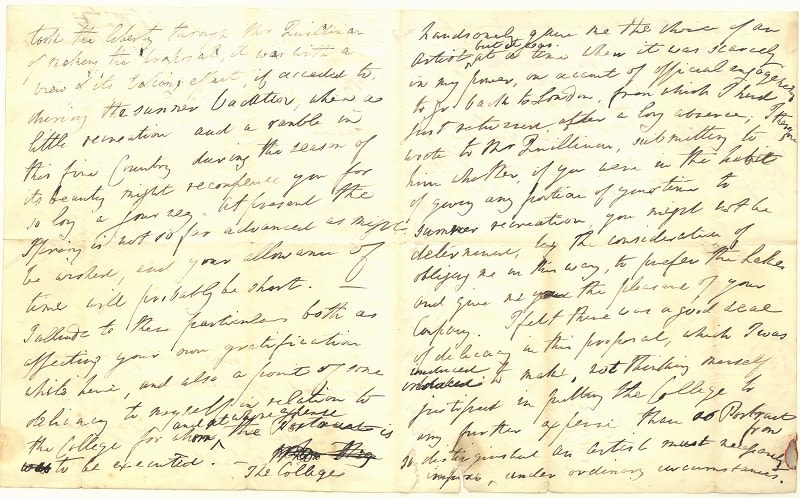 took the liberty through Mr Quillinan
of making the proposal, it was with a
view to its taking effect, if acceded to,
during the summer Vacation, when a
little recreation and a ramble in
this fine Country during the season of
its beauty might recompense you for
so long a journey. At present the
Spring is not so far advanced as might
be wished, and your allowance of
time will probably be short. —
I allude to these particulars both as
affecting your own gratification
while here, and also a point of some
delicacy to myself in relation to
and at whose expense
the College for whom, the Portrait is
to be executed. —
The College
handsomely gave me the choice of an
but it was
Artist, at a time when it was scarcely
in my power, on account of official engagements
to go back to London, from which I had
just returned after a long absence; I therefore
wrote to Mr Quillinan, submitting to
him whether, if you were in the habit
of giving any portion of your time to
summer recreation, you might not be
determined, by the consideration of
obliging me in this way, to prefer the Lakes
and give me the pleasure of your
Company. I felt there was a good deal
of delicacy in this proposal, which I was
induced to make, not thinking myself
justified in putting the College to
any further expense than a Portrait
from
so distinguished an Artist must necessarily
impose, under ordinary circumstances.